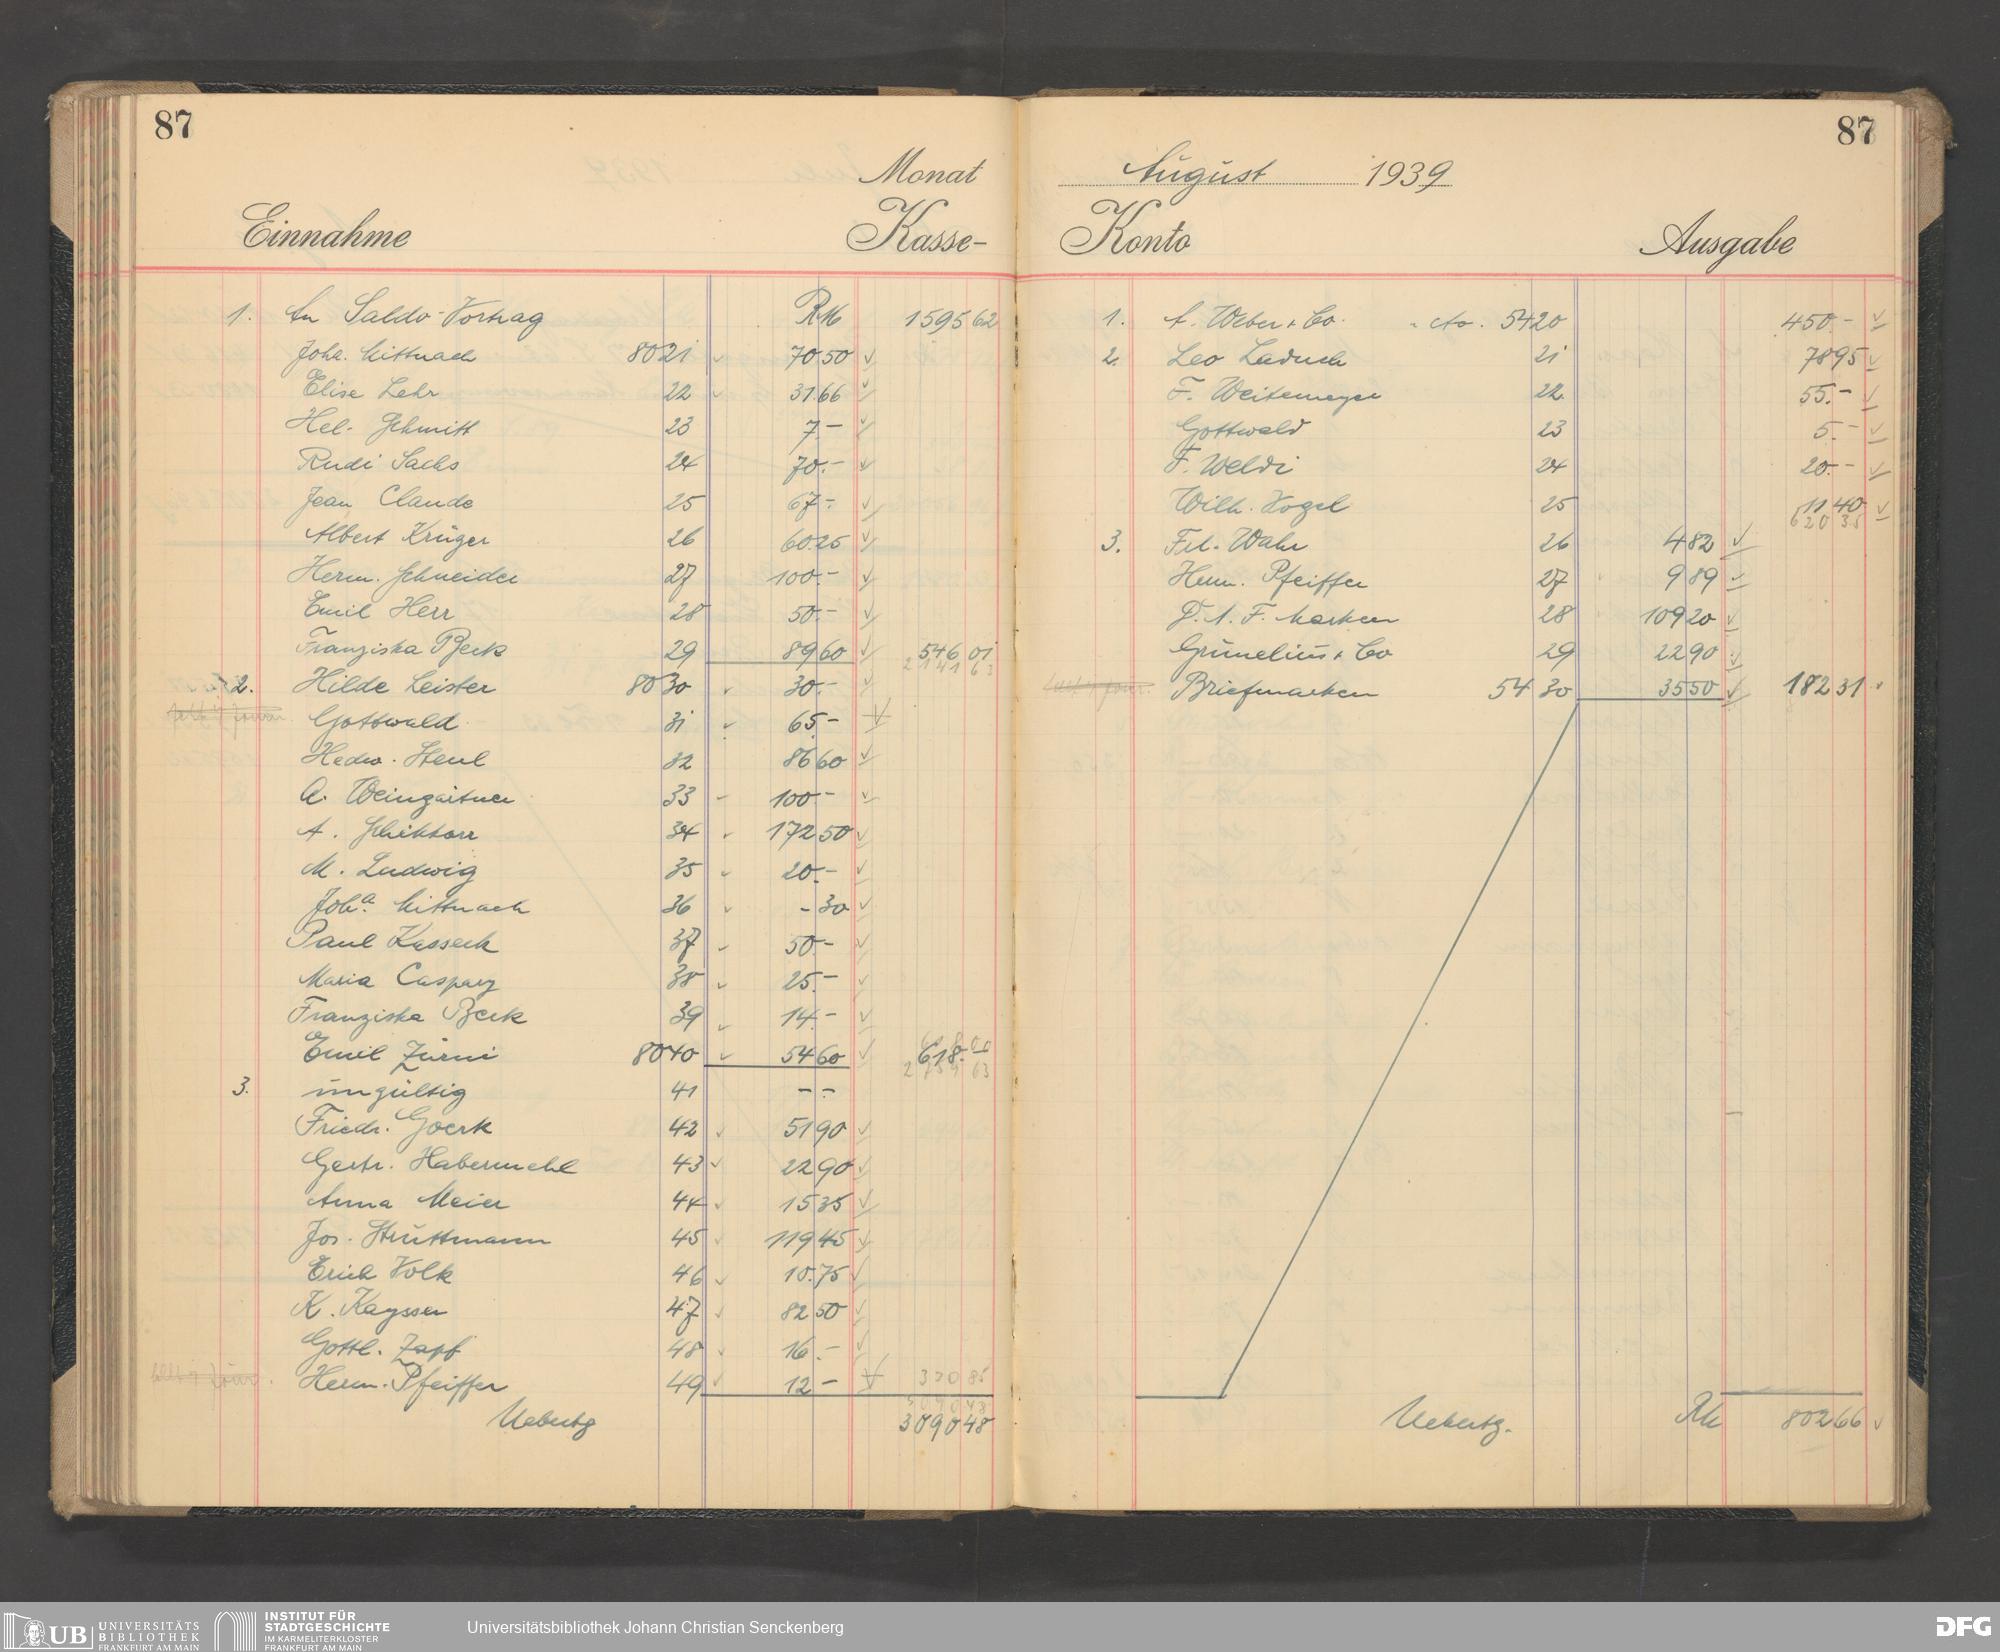 87
Monat
Einnahme Kasse-
1. An Saldo-Vortrag RM 1595 62
Joha. Mittnach 8021 70 50
Elise Lehr 22 31.66
Hel. Schmitt 23 7.-
Rudi Sachs 24 70.-
Jean Claude 25 67.-
Albert Krüger 26 60.25
Herm. Schneider 27 100.-
Emil Herr 28 50.-
Franziska Beck 29 89 60 546 01
2141 63
2. Hilde Leister 8030 30.-
Gottwald 31 65.-
Hedw. Henl 32 86 60
A. Weingärtner 33 100.-
A. Schiktorr 34 172 50
M. Ludwig 35 20.-
Joha. Mittnach 36 - 30
Paul Kasseck 37 50.-
Maria Caspary 38 25.-
Franziska Beck 39 14.-
Emil Zürni 8040 54 60 618.-
3. ungültig 41 - -
Friedr. Goerk 42 51 90
Gertr. Habermehl 43 22 90
Anna Meier 44 15 35
Jos. Struttmann 45 119 45
Erich Volk 46 10.75
K. Kaysser 47 82 50
Gottl. Zapf 48 16.-
Herm. Pfeiffer 49 12 - 330 85
Uebertg 3090 48
87
August 1939
Konto Ausgabe
1. A. Weber & Co. 5420 450.-
2. Leo Laduch 21 78 95
F. Weitemeyer 22 55.-
Gottwald 23 5.-
F. Weldi 24 20.-
Wilh. Vogel 25 11 40
620 35
3. Frl. Wahr 26 4 82
Herm. Pfeiffer 27 9 89
D.A.F. Marken 28 109 20
Grünelius & Co 29 22 90
Briefmarken 5430 35 50 182 31
Uebertg. RM 802 66
UB UNIVERSITÄTS
BIBLIOTHEK
FRANKFURT AM MAIN
INSTITUT FÜR
STADTGESCHICHTE
IM KARMELITERKLOSTER
FRANKFURT AM MAIN
Universitätsbibliothek Johann Christian Senckenberg
DFG